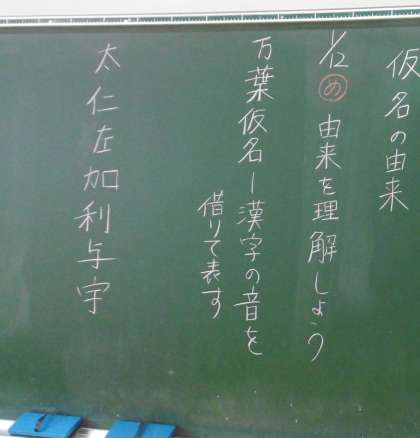 仮名の由来
1/12 め 由来を理解しよう
万葉仮名ー漢字の音を
借りて表す
太仁左加利与宇